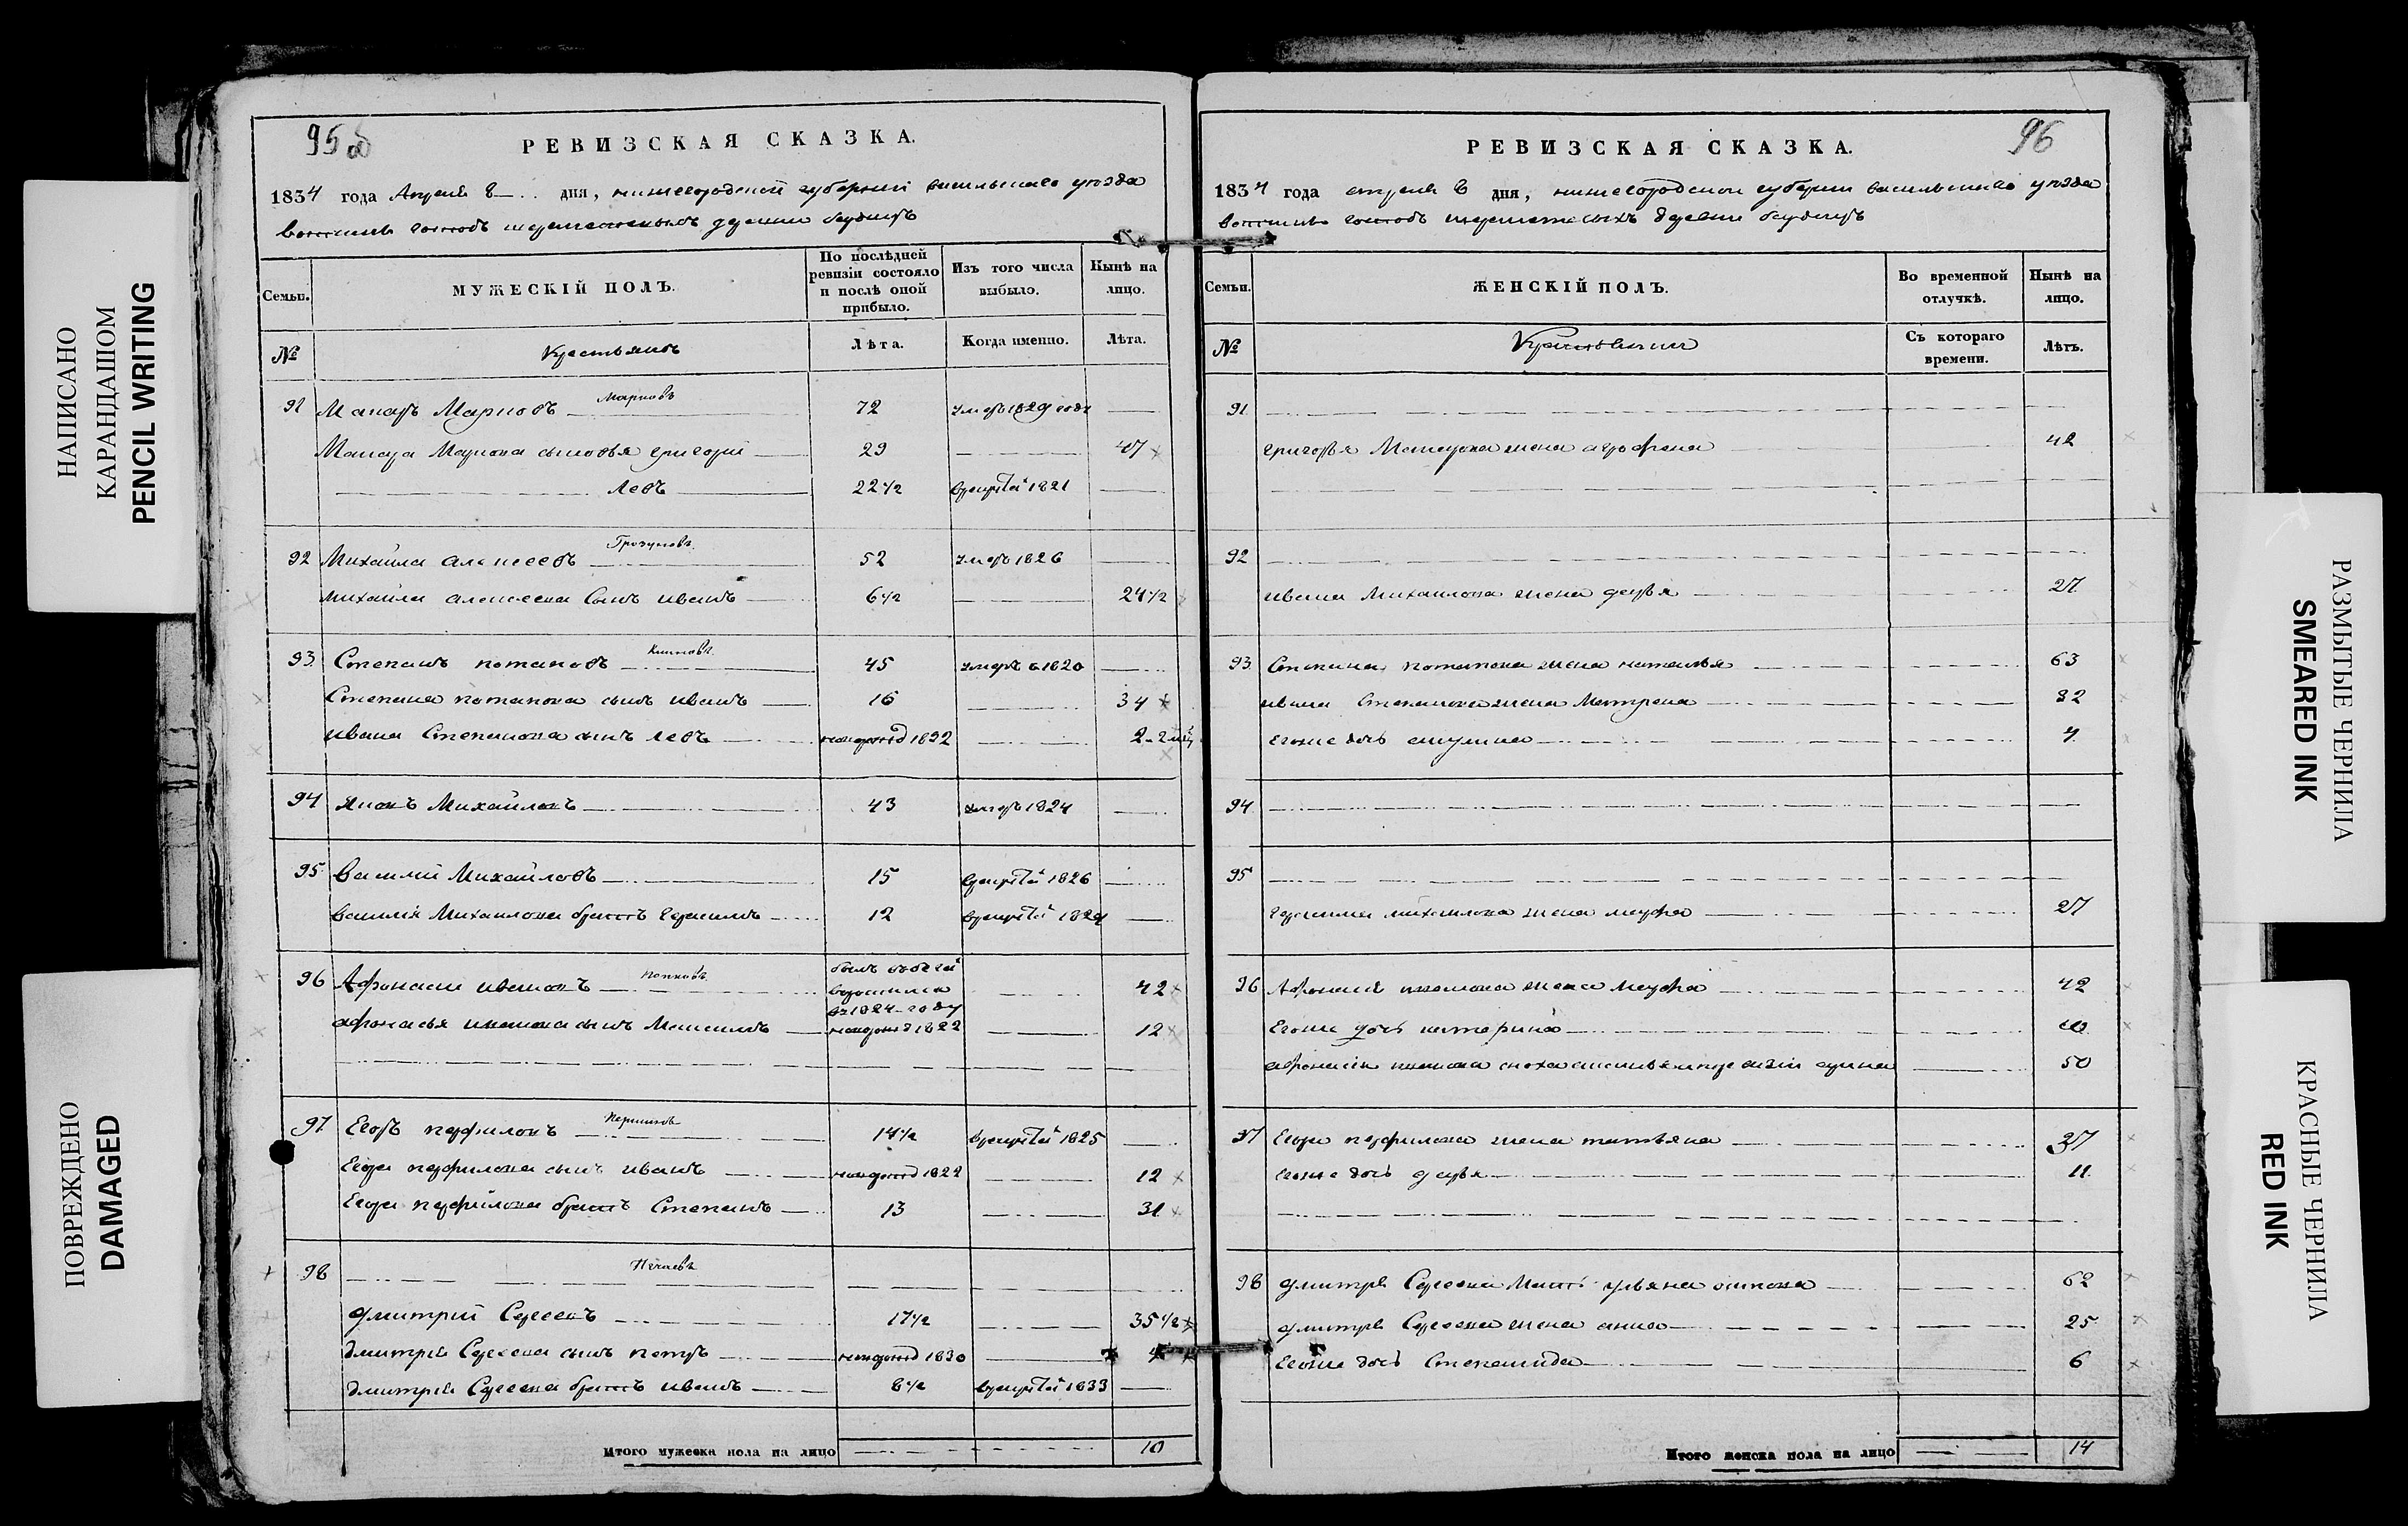 НАПИСАНО
КАРАНДАШОМ
PENCIL WRITING
ПОВРЕЖДЕНО
DAMAGED
95 об
РЕВИЗСКАЯ СКАЗКА.
1834 года Апреля 8 дня, нижегородской губернии васильского уезда
вотчины деревни
Семьи.
МУЖЕСКІЙ ПОЛЪ.
По послѣдней ревизіи состояло и послѣ оной прибыло.
Изъ того числа выбыло.
Нынѣ на лицо.
№
Крестьянъ
Лѣта.
Когда именно.
Лѣта.
Марковъ
91 Макаръ Марковъ 72 умеръ 1829 года
Макара Маркова сыновья григорій 29 47
Левъ 22 1/2 врекруты 1821
92 Михайла алексеевъ 52 умеръ 1826
михайла алексеева сынъ иванъ 6 1/2 24 1/2
93 Степанъ потаповъ 45 умеръ в 1820
Степана потапова сынъ иванъ 16 34
ивана Степанова сынъ левъ 1832 2
94 Михайловъ 43 умеръ 1824
95 Василий Михайловъ 15 врекруты 1826
василья Михайлова братъ герасимъ 12 врекруты 1824
Попковъ
96 Афонасеи ивановъ былъ вбегахъ 42
1824 году
афонасья иванова сынъ Максимъ 1822 12
97 Егоръ перфиловъ 14 1/2 врекруты 1825
Егора перфилова сынъ иванъ 1822 12
Егора перфилова братъ Степанъ 13 31
Нечаевъ
98
дмитрий Сергеевъ 17 1/2 35 1/2
дмитрия Сергеева сынъ петръ 1830 4
дмитрия Сергеева братъ иванъ 8 1/2 врекруты 1833
Итого мужеска пола на лицо 10
96
РЕВИЗСКАЯ СКАЗКА.
1834 года апреля 8 дня, нижегородской губернии васильского уезда
вотчины деревни
Семьи.
ЖЕНСКІЙ ПОЛЪ.
Во временной отлучкѣ.
Нынѣ на лицо.
№
Съ котораго времени.
Лѣтъ.
91
григорья Макарова жена аграфена 42
92
ивана Михаилова жена дарья 27
93 Степана потапова жена наталья 63
ивана Степанова жена Матрена 32
егоже дочь акулина 4
94
95
герасима михаилова жена марфа 27
96 Афонасья иванова жена марфа 42
Егоже дочь катерина
афонасья иванова сноха 50
97 Егора перфилова жена татьяна 37
Егоже дочь дарья 11
98 дмитрея Сергеева Мать ульяна 62
дмитрея Сергеева жена анна 25
Егоже дочь Степанида 6
Итого женска пола на лицо 14
РАЗМЫТЫЕ ЧЕРНИЛА
SMEARED INK
КРАСНЫЕ ЧЕРНИЛА
RED INK